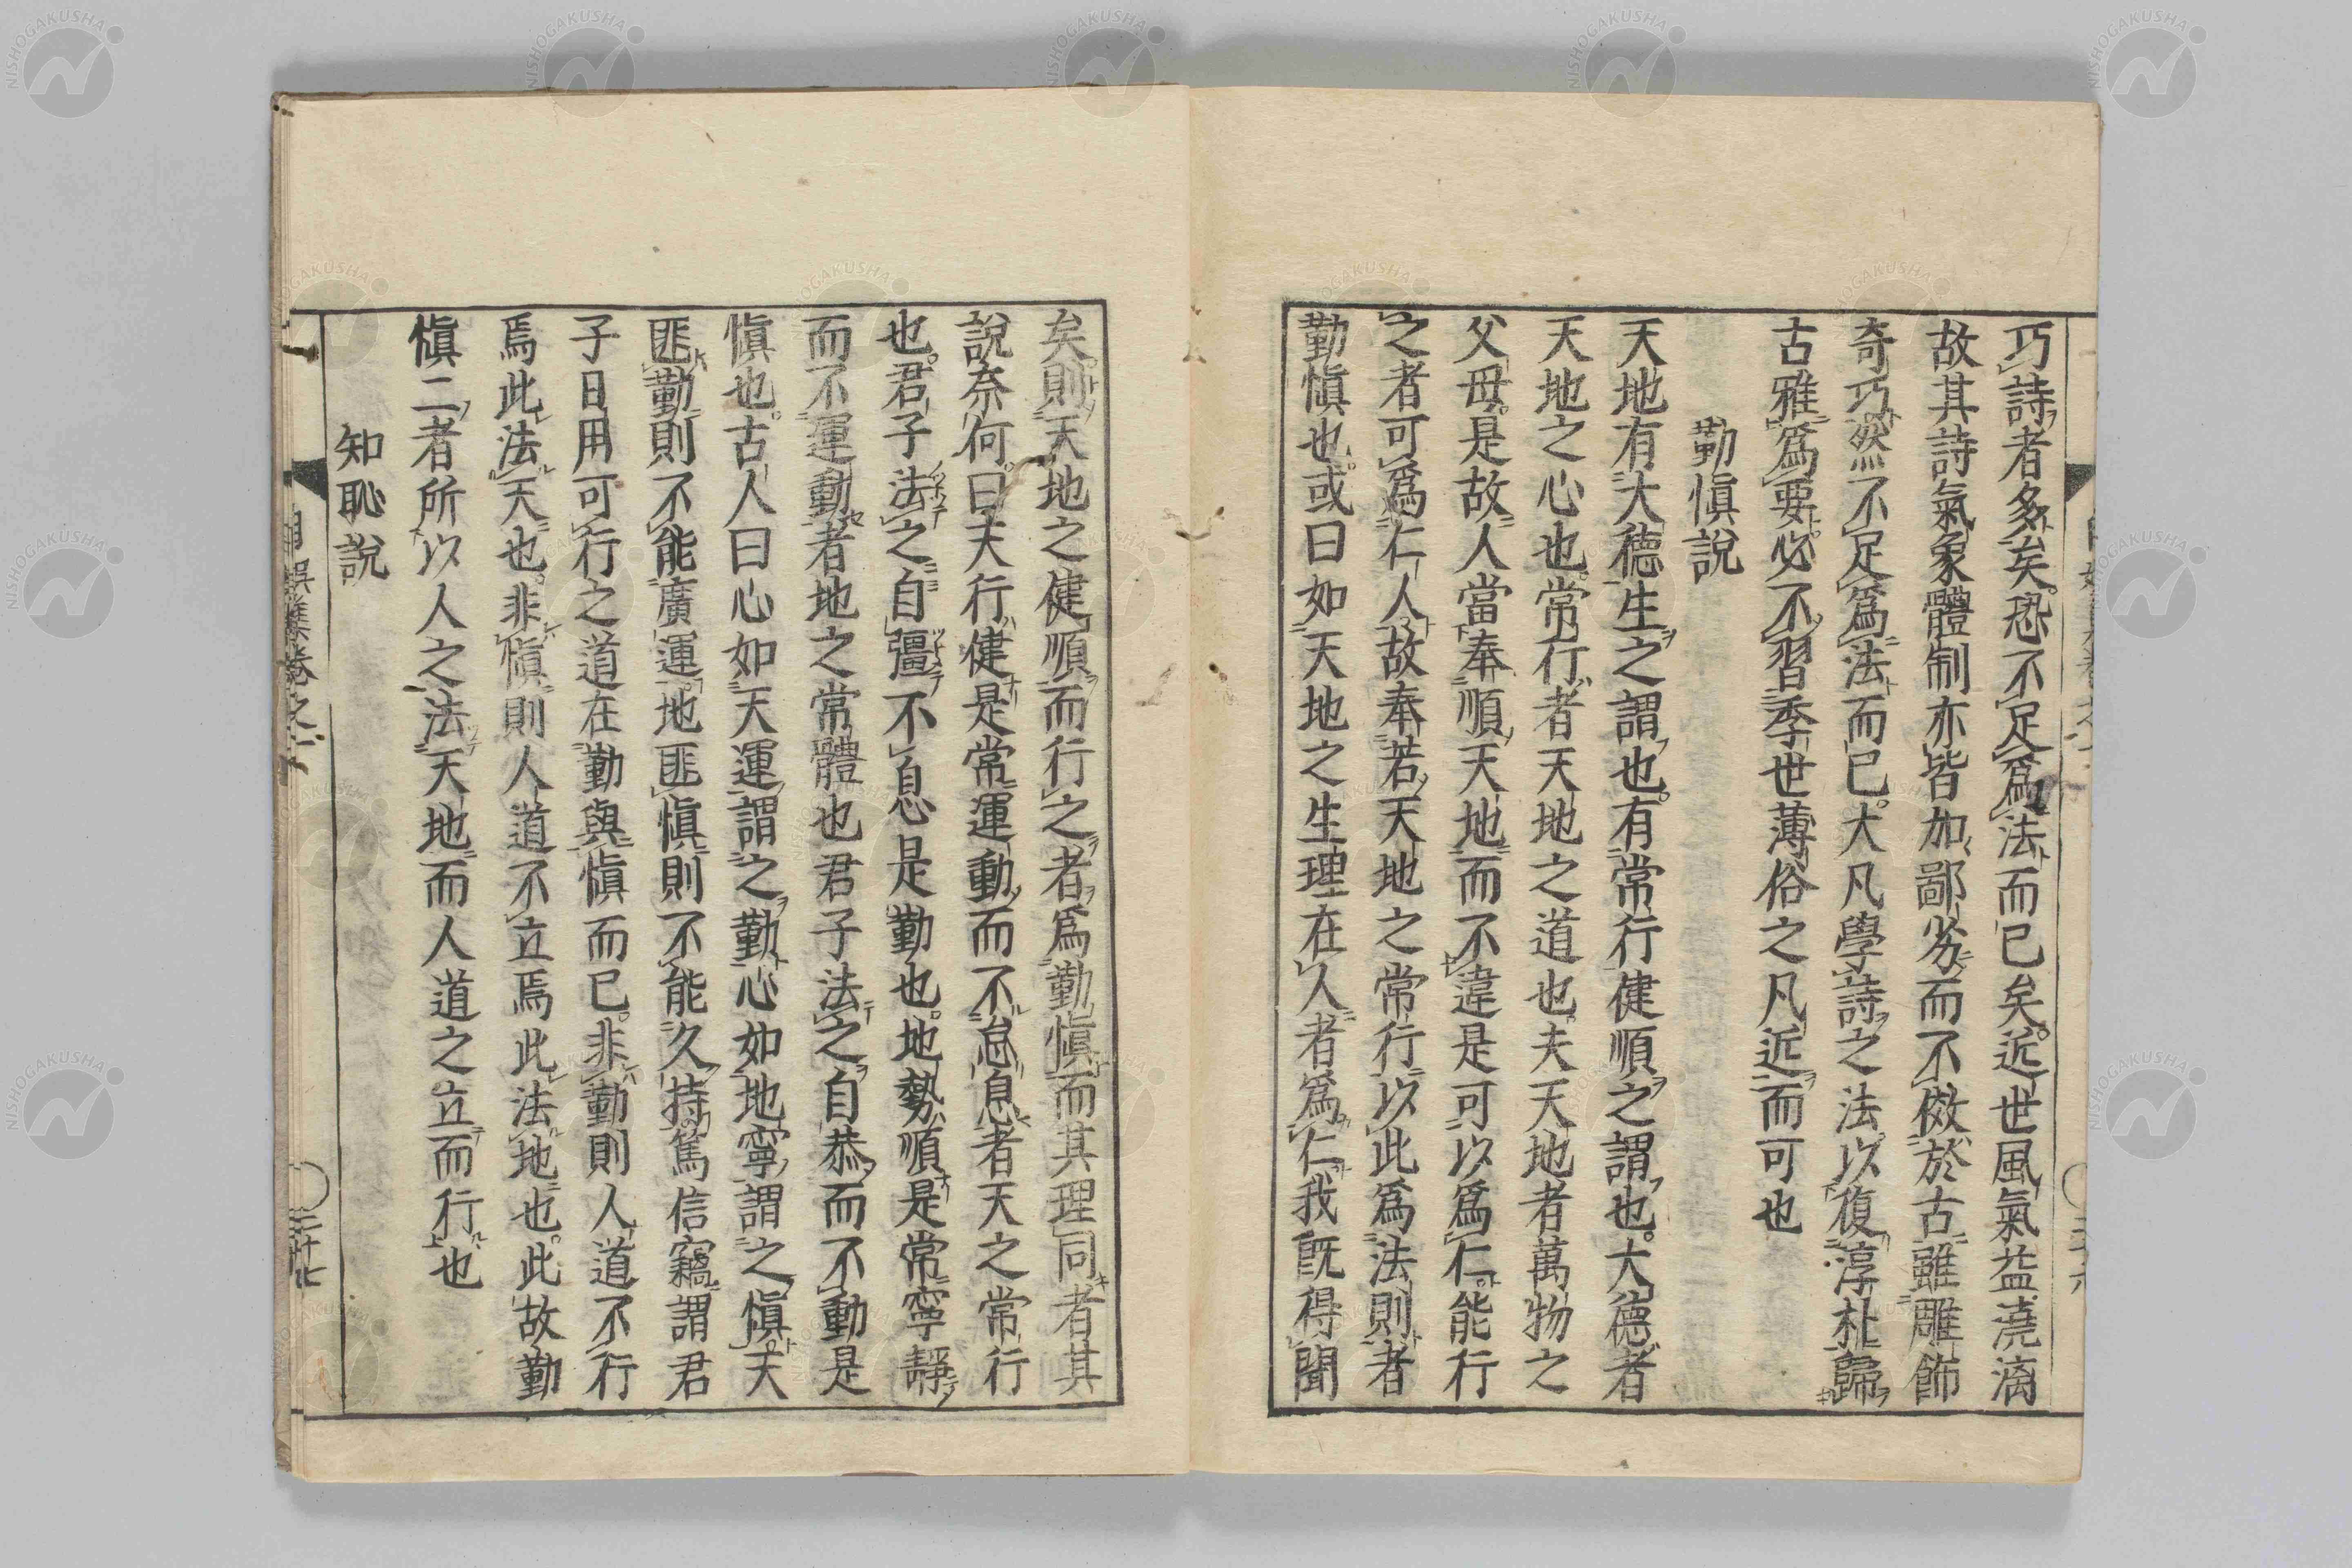 巧詩者多矣。恐不足爲法而已矣。近世風氣益澆漓
故其詩氣象體制亦皆加鄙劣而不倣於古。雖雕飾
奇巧然不足爲法而已。大凡學詩之法。以復淳朴歸
古雅爲要。必不習季世薄俗之凡近而可也
勤愼說
天地有大德生之謂也。有常行健順之謂也。大德者
天地之心也。常行者天地之道也。夫天地者萬物之
父母。是故人當奉順天地而不違。是可以爲仁。能行
之者可爲仁人。故奉若天地之常行。以此爲法則者
勤愼也。或曰如天地之生理在人者爲仁我既得聞
矣。則天地之健順而行之者爲勤愼而其理同者其
說奈何。曰天行健是常運動而不怠息者天之常行
也。君子法之自彊不息是勤也。地勢順是常寧靜
而不運動者地之常體也君子法之自恭而不動是
愼也。古人曰心如天運謂之勤心如地寧謂之愼。天
匪勤則不能廣運。地匪愼則不能久持。篤信竊謂君
子日用可行之道在勤與愼而已。非勤則人道不行
焉此法天也。非愼則人道不立焉此法地也。此故勤
愼二者所以人之法天地而人道之立而行也
知恥說
自娛集卷之一
二十七
NISHOGAKUSHA